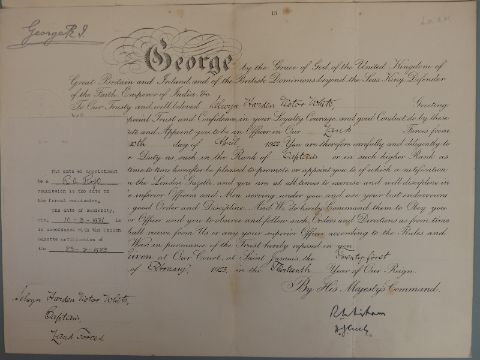 George R.I.
George by the Grace of God of the United Kingdom of
Great Britain and Ireland and of the British Dominions beyond the Seas King, Defender
of the Faith, Emperor of India, &c.
To Our Trusty and well beloved Selwyn Harden Victor White Greeting
special Trust and Confidence in your Loyalty, Courage, and good Conduct, do by these
and Appoint you to be an Officer in Our Land Forces from
day of April 1922 You are therefore carefully and diligently to
Duty as such in the Rank of Captain or in such higher Rank as
time to time hereafter be pleased to promote or appoint you to of which a notification
the London Gazette and you are at all times to exercise and well discipline in
inferior Officers and Men serving under you and use your best endeavours
good Order and Discipline. And We do hereby Command them to Obey you
Officer and you to observe and follow such Orders and Directions as from time
shall receive from Us or any your superior Officer, according to the Rules and
War, in pursuance of the Trust hereby reposed in you
Given at Our Court, at Saint James's the Twenty first
of February 1923, in the Thirteenth Year of Our Reign.
By His Majesty's Command.
The date of appointment
to a
commission is the date on
the formal
The date of seniority,
is
in accordance with the London
Gazette notification of
the
Selwyn Harden Victor White
Captain,
Land Forces